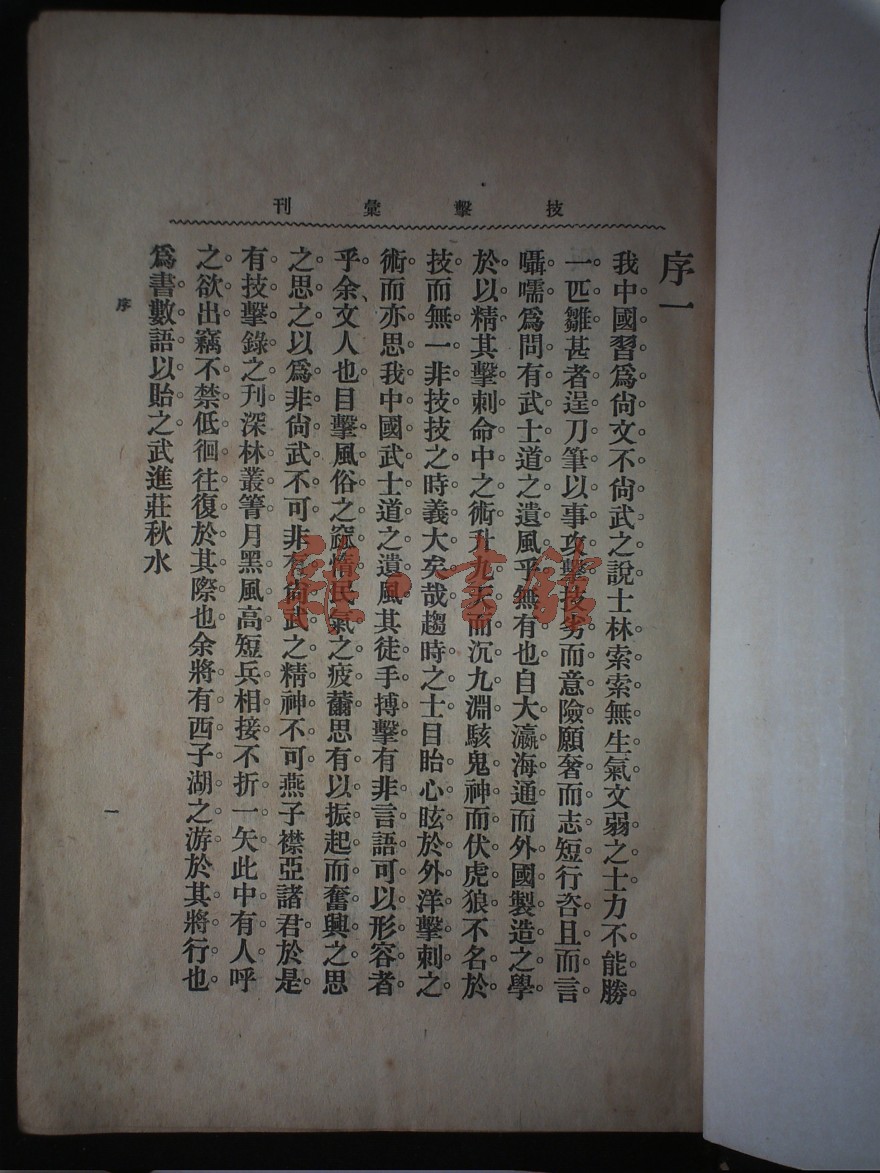 技擊彙刊
序一
我中國習爲尙文不尙武之說士林索索無生氣文弱之士力不能勝
一匹雛甚者逞刀筆以事攻擊技劣而意險願奢而志短行吝且而言
囁嚅爲問有武士道之遺風乎無有也自大瀛海通而外國製造之學
於以精其擊刺命中之術升九天而沉九淵駭鬼神而伏虎狼不名於
技而無一非技技之時義大矣哉趨時之士目眙心眩於外洋擊刺之
術而亦思我中國武士道之遺風其徒手搏擊有非言語可以形容者
乎余文人也目擊風俗之窳惰民氣之疲薾思有以振起而奮興之思
之思之以爲非尙武不可非有尙武之精神不可燕子襟亞諸君於是
有技擊錄之刋深林叢箐月黑風高短兵相接不折一矢此中有人呼
之欲出竊不禁低徊往復於其際也余將有西子湖之游於其將行也
爲書數語以貽之武進莊秋水
序
一